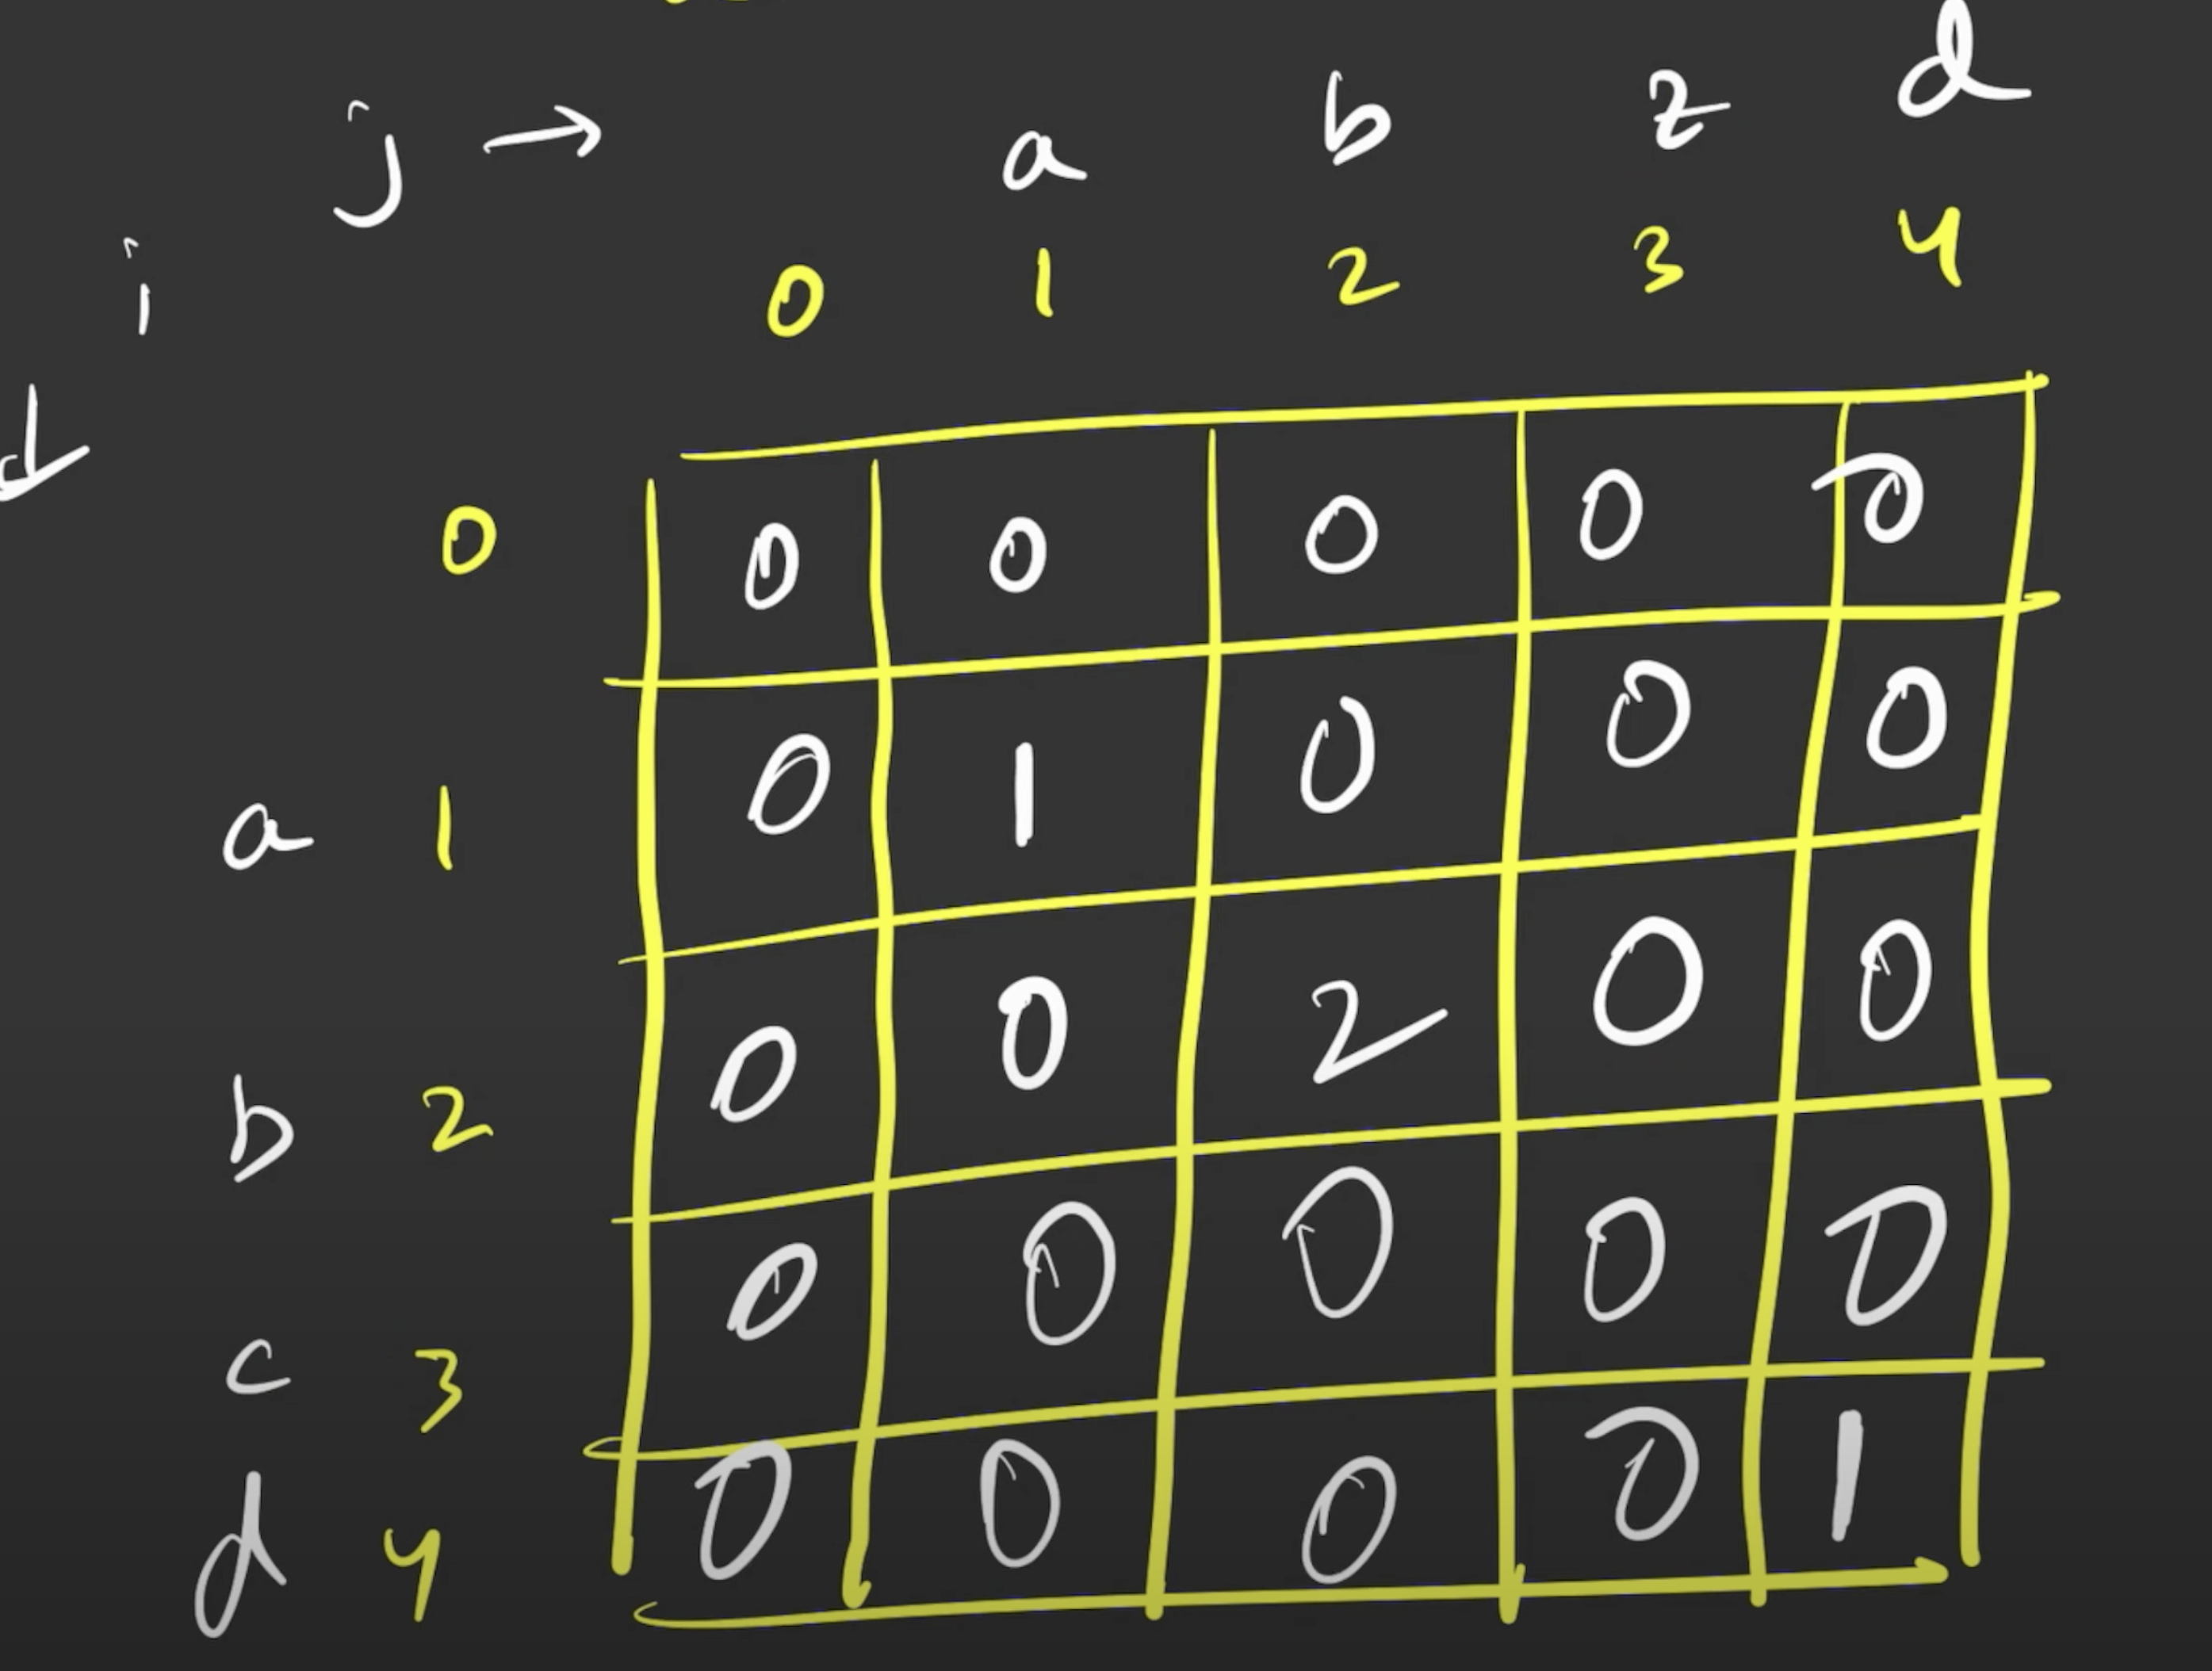 j → a b z d
i 0 1 2 3 4
0 0 0 0 0 0
a 1 0 1 0 0 0
b 2 0 0 2 0 0
c 3 0 0 0 0 0
d 4 0 0 0 0 1